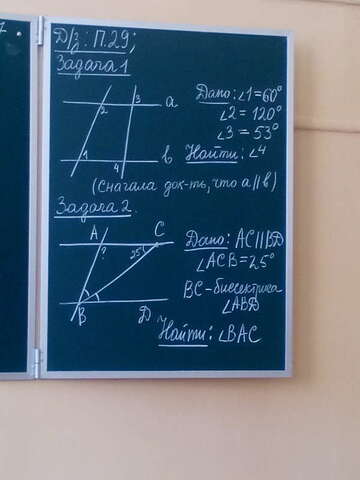 Д/з: П.29;
Задача 1
2 3 a
1 4 b
Дано: ∠1=60°
∠2 = 120°
∠3 = 53°
Найти: ∠4
(Сначала док-ть, что a∥b)
Задача 2.
A C
? 25°
B Д
Дано: AC∥BД
∠ACB=25°
BC-биссектриса
∠ABД
Найти: ∠BAC